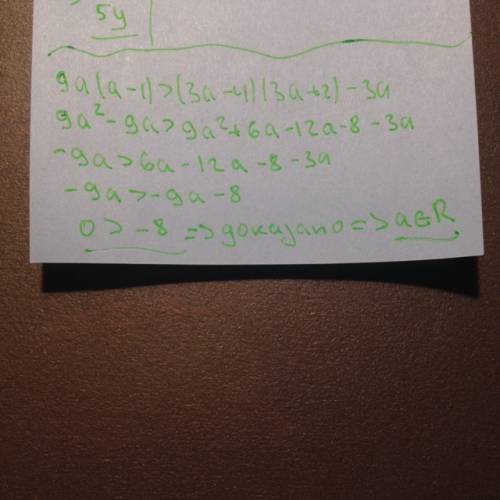 5y
9a(a-1)>(3a-4)(3a+2)-3a
9a²-9a>9a²+6a-12a-8-3a
-9a>6a-12a-8-3a
-9a>-9a-8
0>-8 => доказано => a∈R